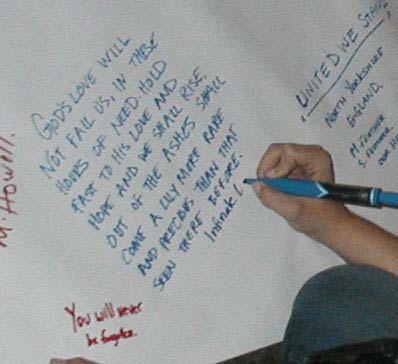 M. Howell.
GOD'S LOVE WILL
NOT FAIL US, IN THESE
HOURS OF NEED. HOLD
FAST TO HIS LOVE AND
HOPE AND WE SHALL RISE.
OUT OF THE ASHES SHALL
COME A LILY MORE RARE
AND PRECIOUS THAN THAT
SEEN THERE BEFORE.
Infinite
UNITED WE STAND,
NORTH YORKSHIRE
ENGLAND.
You will never
be forgotten.